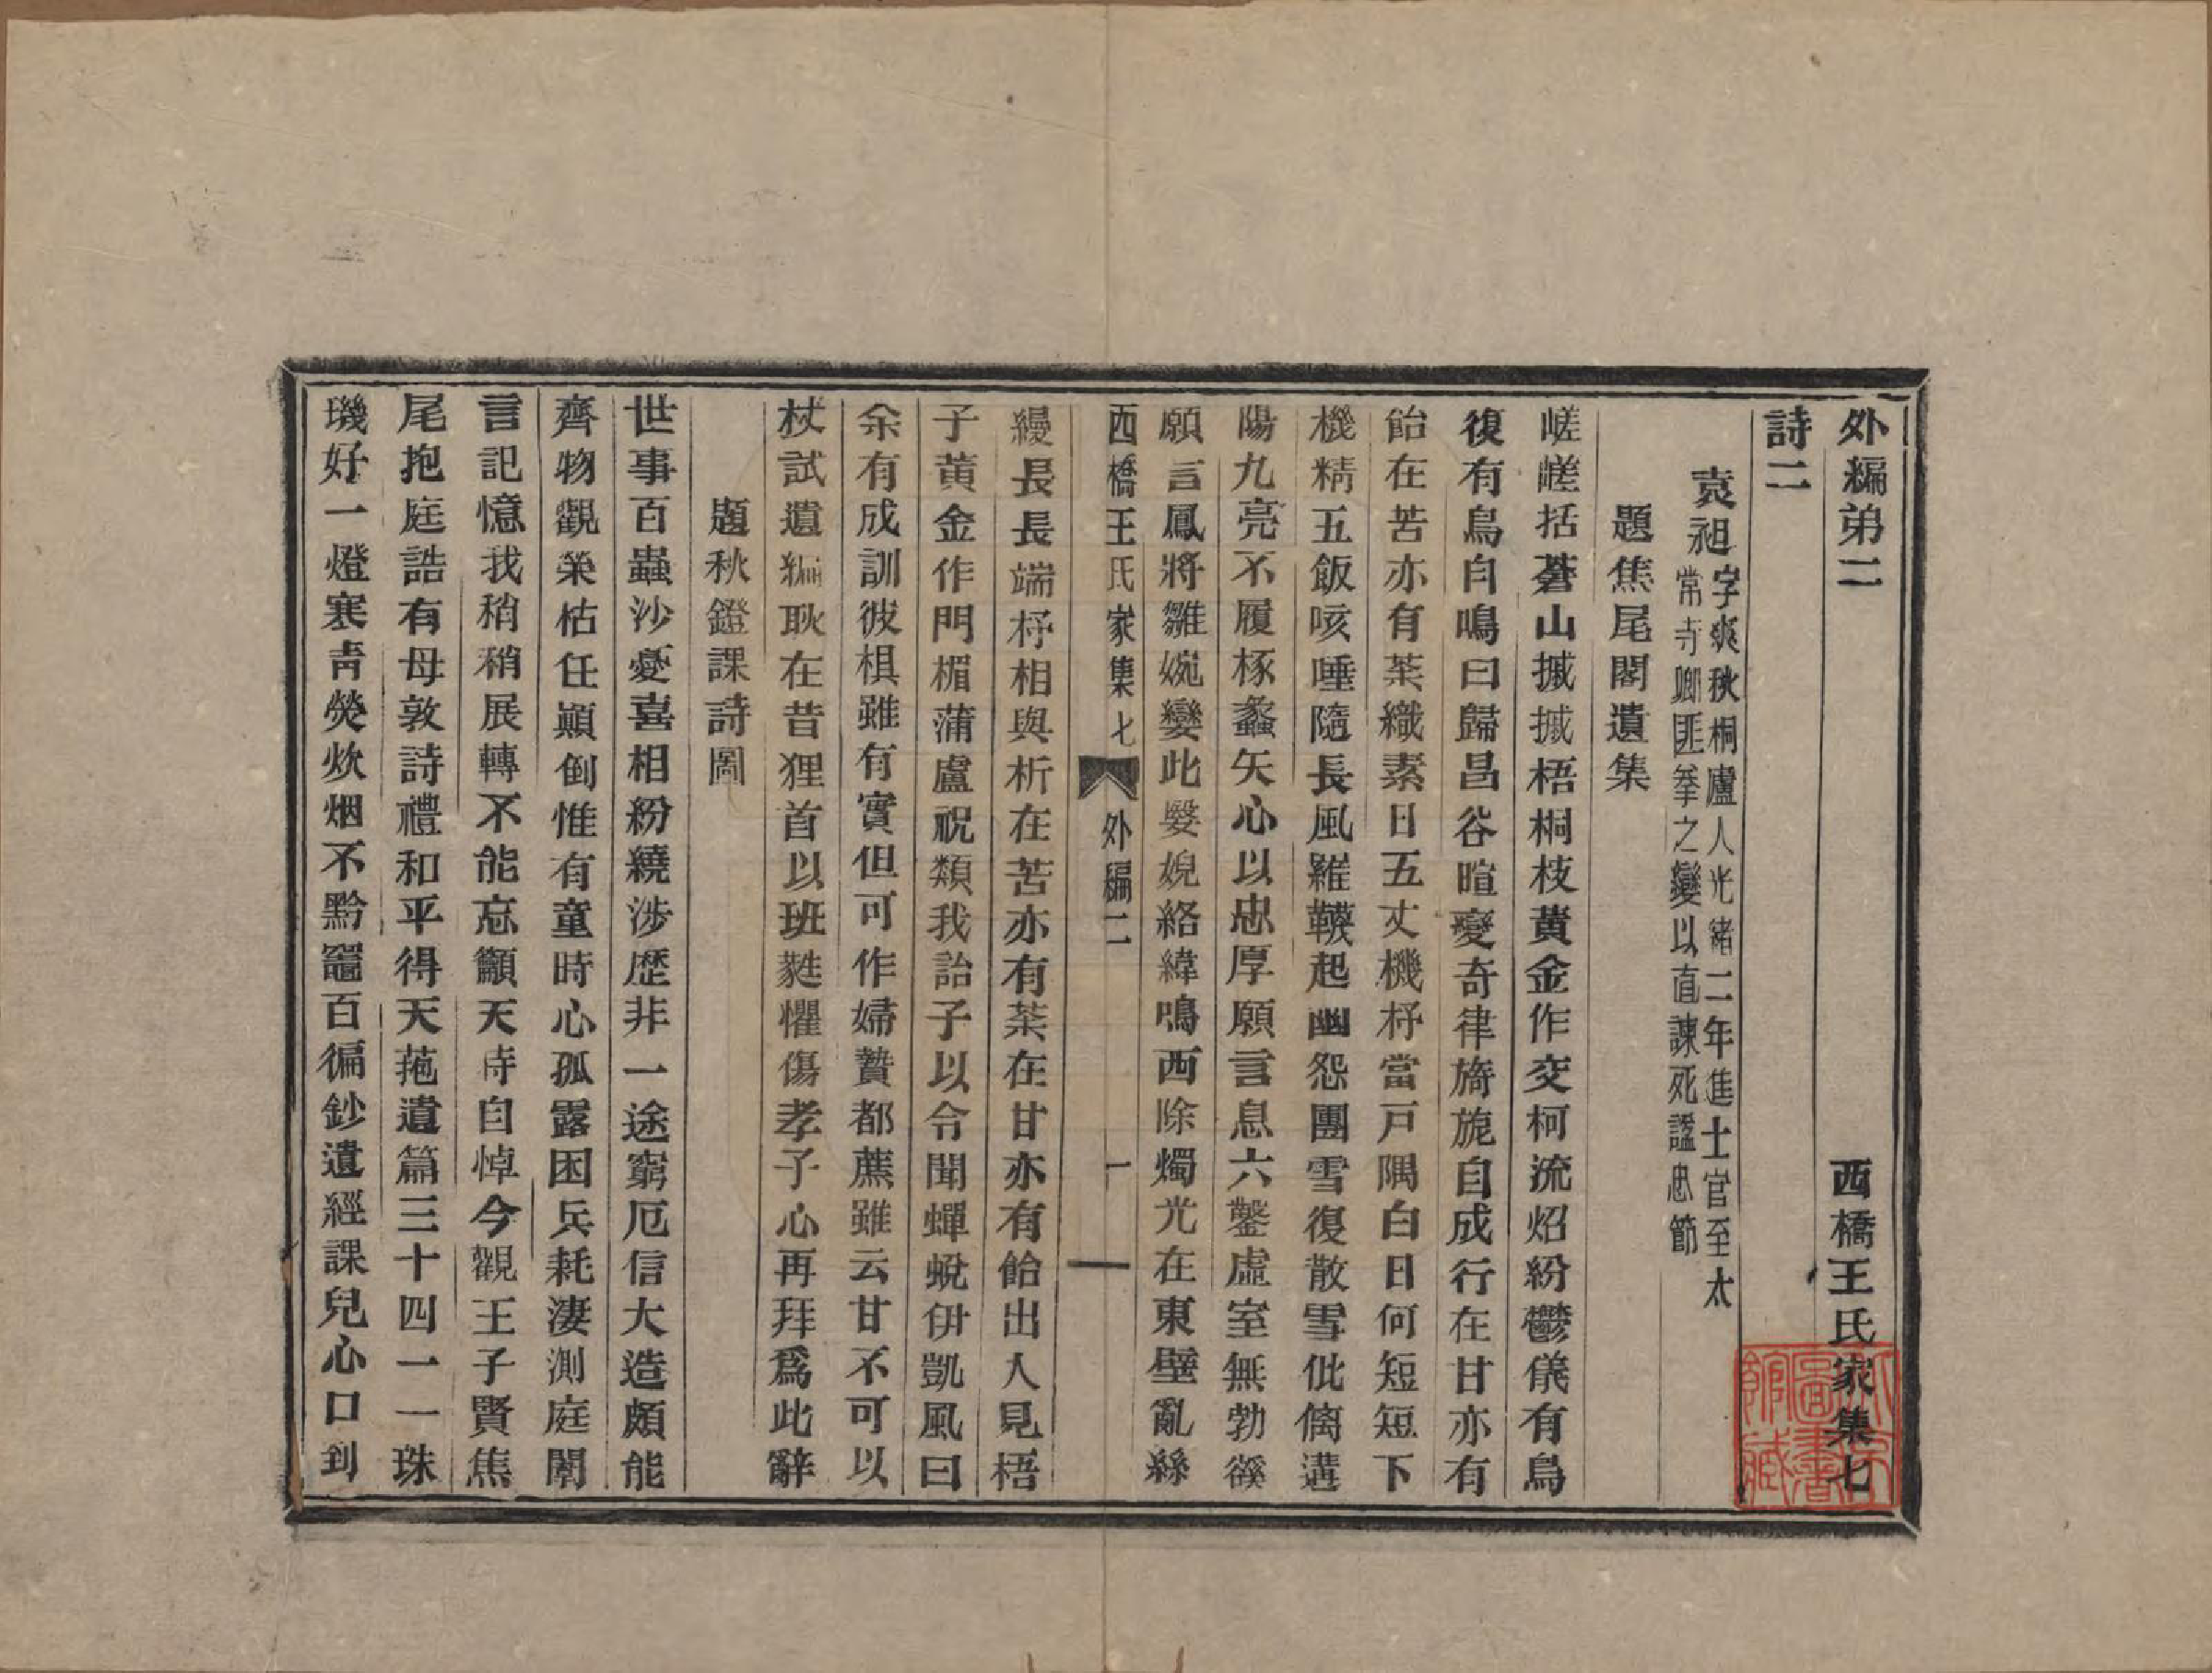 外編弟二　西橋王氏家集七
詩二
袁昶字爽秋桐廬人光緒二年進士官至太
常寺卿匪拳之變以直諫死諡忠節
題焦尾閣遺集
嵯嵯括蒼山摵摵梧桐枝黃金作交柯流炤紛鬱儀有鳥
復有鳥自鳴曰歸昌谷暄變奇律旖旎自成行在甘亦有
飴在苦亦有荼織素日五丈機杼當戸隅白日何短短下
機精五飯咳唾隨長風羅韈起幽怨團雪復散雪仳偶溝
陽九亮不履椓蠡矢心以忠厚願言息六鑿虛室無勃谿
願言鳳將雛婉孌此嫛婗絡緯鳴西除燭光在東壁亂絲
西橋王氏家集七　外編二　一
縵長長端杼相與析在苦亦有荼在甘亦有飴出人見梧
子黃金作門楣蒲盧祝類我詒子以令聞蟬蛻伊凱風曰
余有成訓彼椇雖有實但可作婦贄都蔗雖云甘不可以
杖試遺編耿在昔狸首以班蕤懼傷孝子心再拜爲此辭
題秋鐙課詩圖
世事百蟲沙憂喜相紛繞涉歷非一途窮厄信大造頗能
齊物觀榮枯任顚倒惟有童時心孤露困兵耗淒測庭闈
言記憶我稍稍展轉不能忘籲天時自悼今觀王子賢焦
尾抱庭誥有母敦詩禮和平得天葩遺篇三十四一一珠
璣好一燈寒靑熒炊烟不黔竈百徧鈔遺經課兒心口到